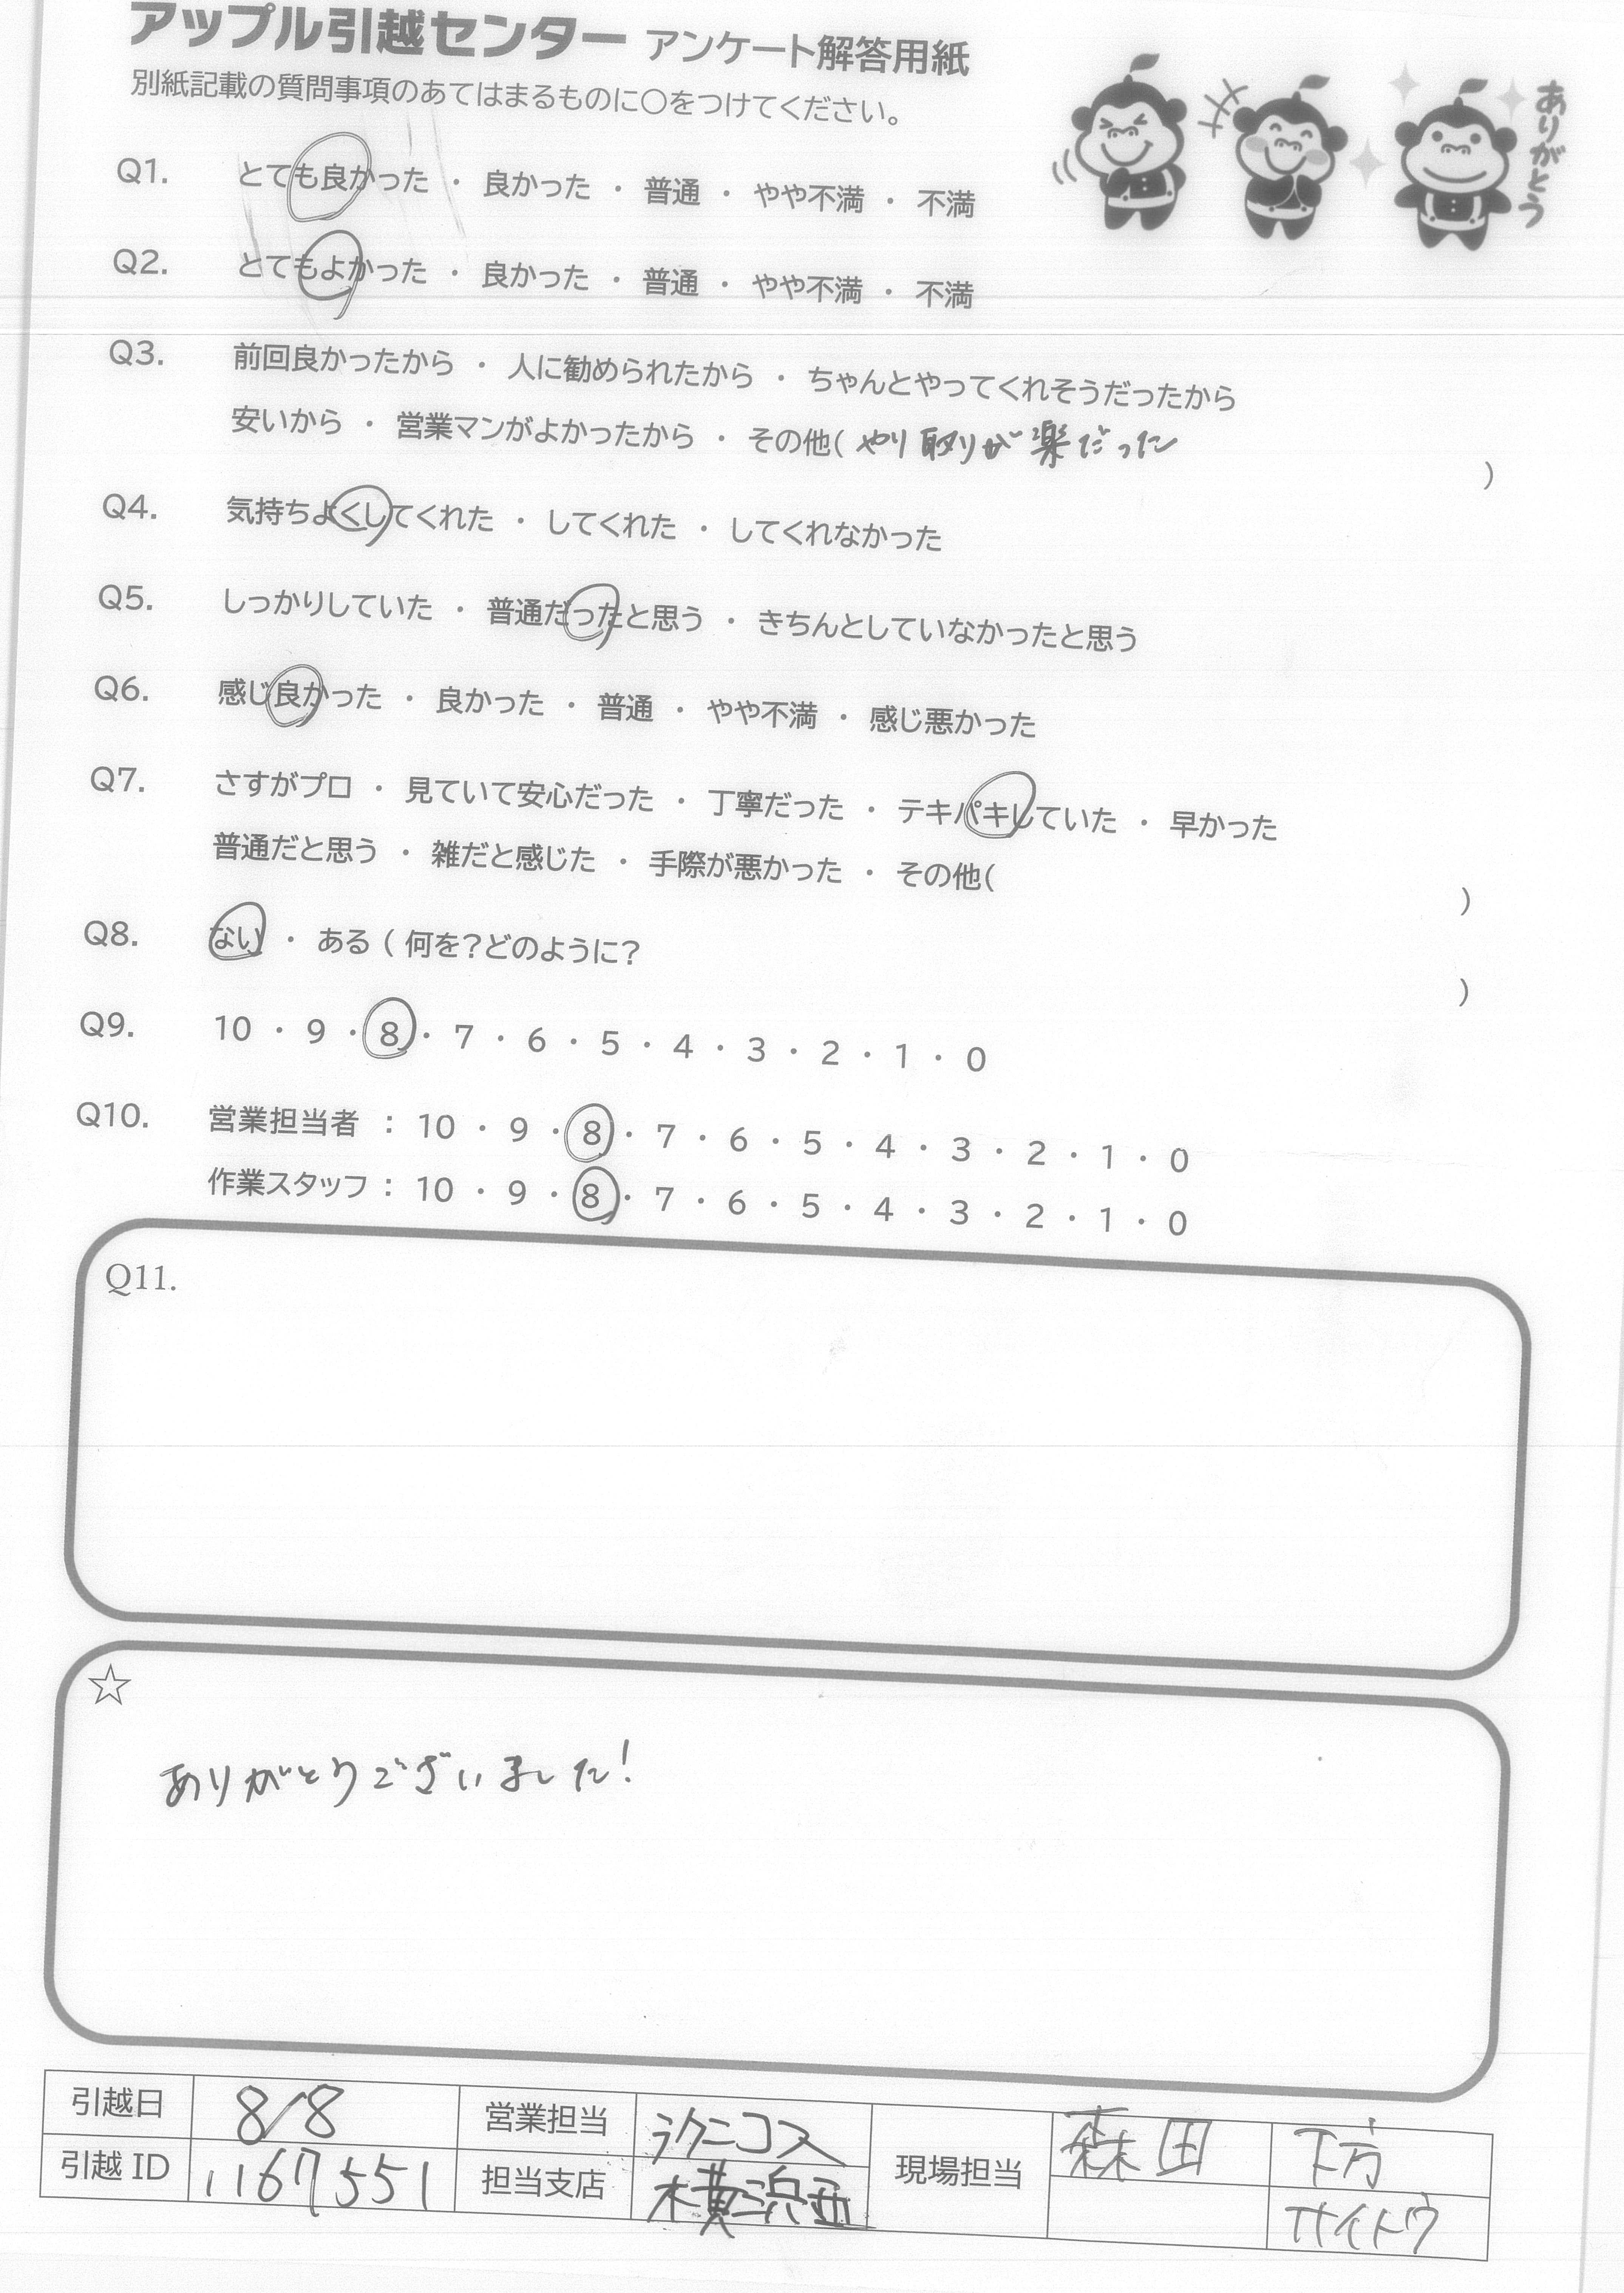 アップル引越センター アンケート解答用紙
別紙記載の質問事項のあてはまるものに〇をつけてください。
ありがとう
Q1. とても良かった ・ 良かった ・ 普通 ・ やや不満 ・ 不満
Q2. とてもよかった ・ 良かった ・ 普通 ・ やや不満 ・ 不満
Q3. 前回良かったから ・ 人に勧められたから ・ ちゃんとやってくれそうだったから
安いから ・ 営業マンがよかったから ・ その他( やり取りが楽だった )
Q4. 気持ちよくしてくれた ・ してくれた ・ してくれなかった
Q5. しっかりしていた ・ 普通だったと思う ・ きちんとしていなかったと思う
Q6. 感じ良かった ・ 良かった ・ 普通 ・ やや不満 ・ 感じ悪かった
Q7. さすがプロ ・ 見ていて安心だった ・ 丁寧だった ・ テキパキしていた ・ 早かった
普通だと思う ・ 雑だと感じた ・ 手際が悪かった ・ その他( )
Q8. ない ・ ある ( 何を?どのように? )
Q9. 10 ・ 9 ・ 8 ・ 7 ・ 6 ・ 5 ・ 4 ・ 3 ・ 2 ・ 1 ・ 0
Q10. 営業担当者 : 10 ・ 9 ・ 8 ・ 7 ・ 6 ・ 5 ・ 4 ・ 3 ・ 2 ・ 1 ・ 0
作業スタッフ : 10 ・ 9 ・ 8 ・ 7 ・ 6 ・ 5 ・ 4 ・ 3 ・ 2 ・ 1 ・ 0
Q11.
☆
ありがとうございました!
引越日 8/8 営業担当 現場担当 森田 下方
引越 ID 1167551 担当支店 サイトウ